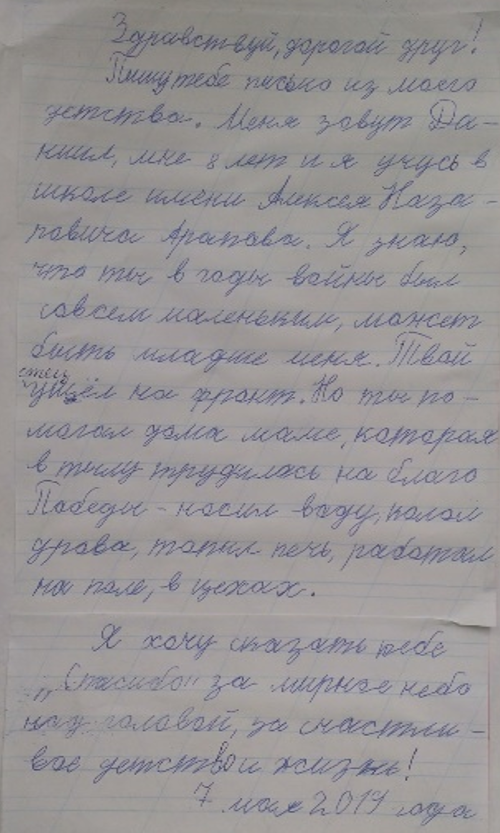 Здравствуй, дорогой друг!
Пишу тебе письмо из моего
детства. Меня зовут Да-
ниил, мне 8 лет и я учусь в
школе имени Алексея Наза-
ровича Арапова. Я знаю,
что ты в годы войны был
совсем маленьким, может
быть младше меня. Твой
отец
ушёл на фронт. Но ты по-
могал дома маме, которая
в тылу трудилась на благо
Победы - носил воду, колол
дрова, топил печь, работал
на поле, в цехах.
Я хочу сказать тебе
„Спасибо" за мирное небо
над головой, за счастли-
вое детство и жизнь!
7 мая 2019 года